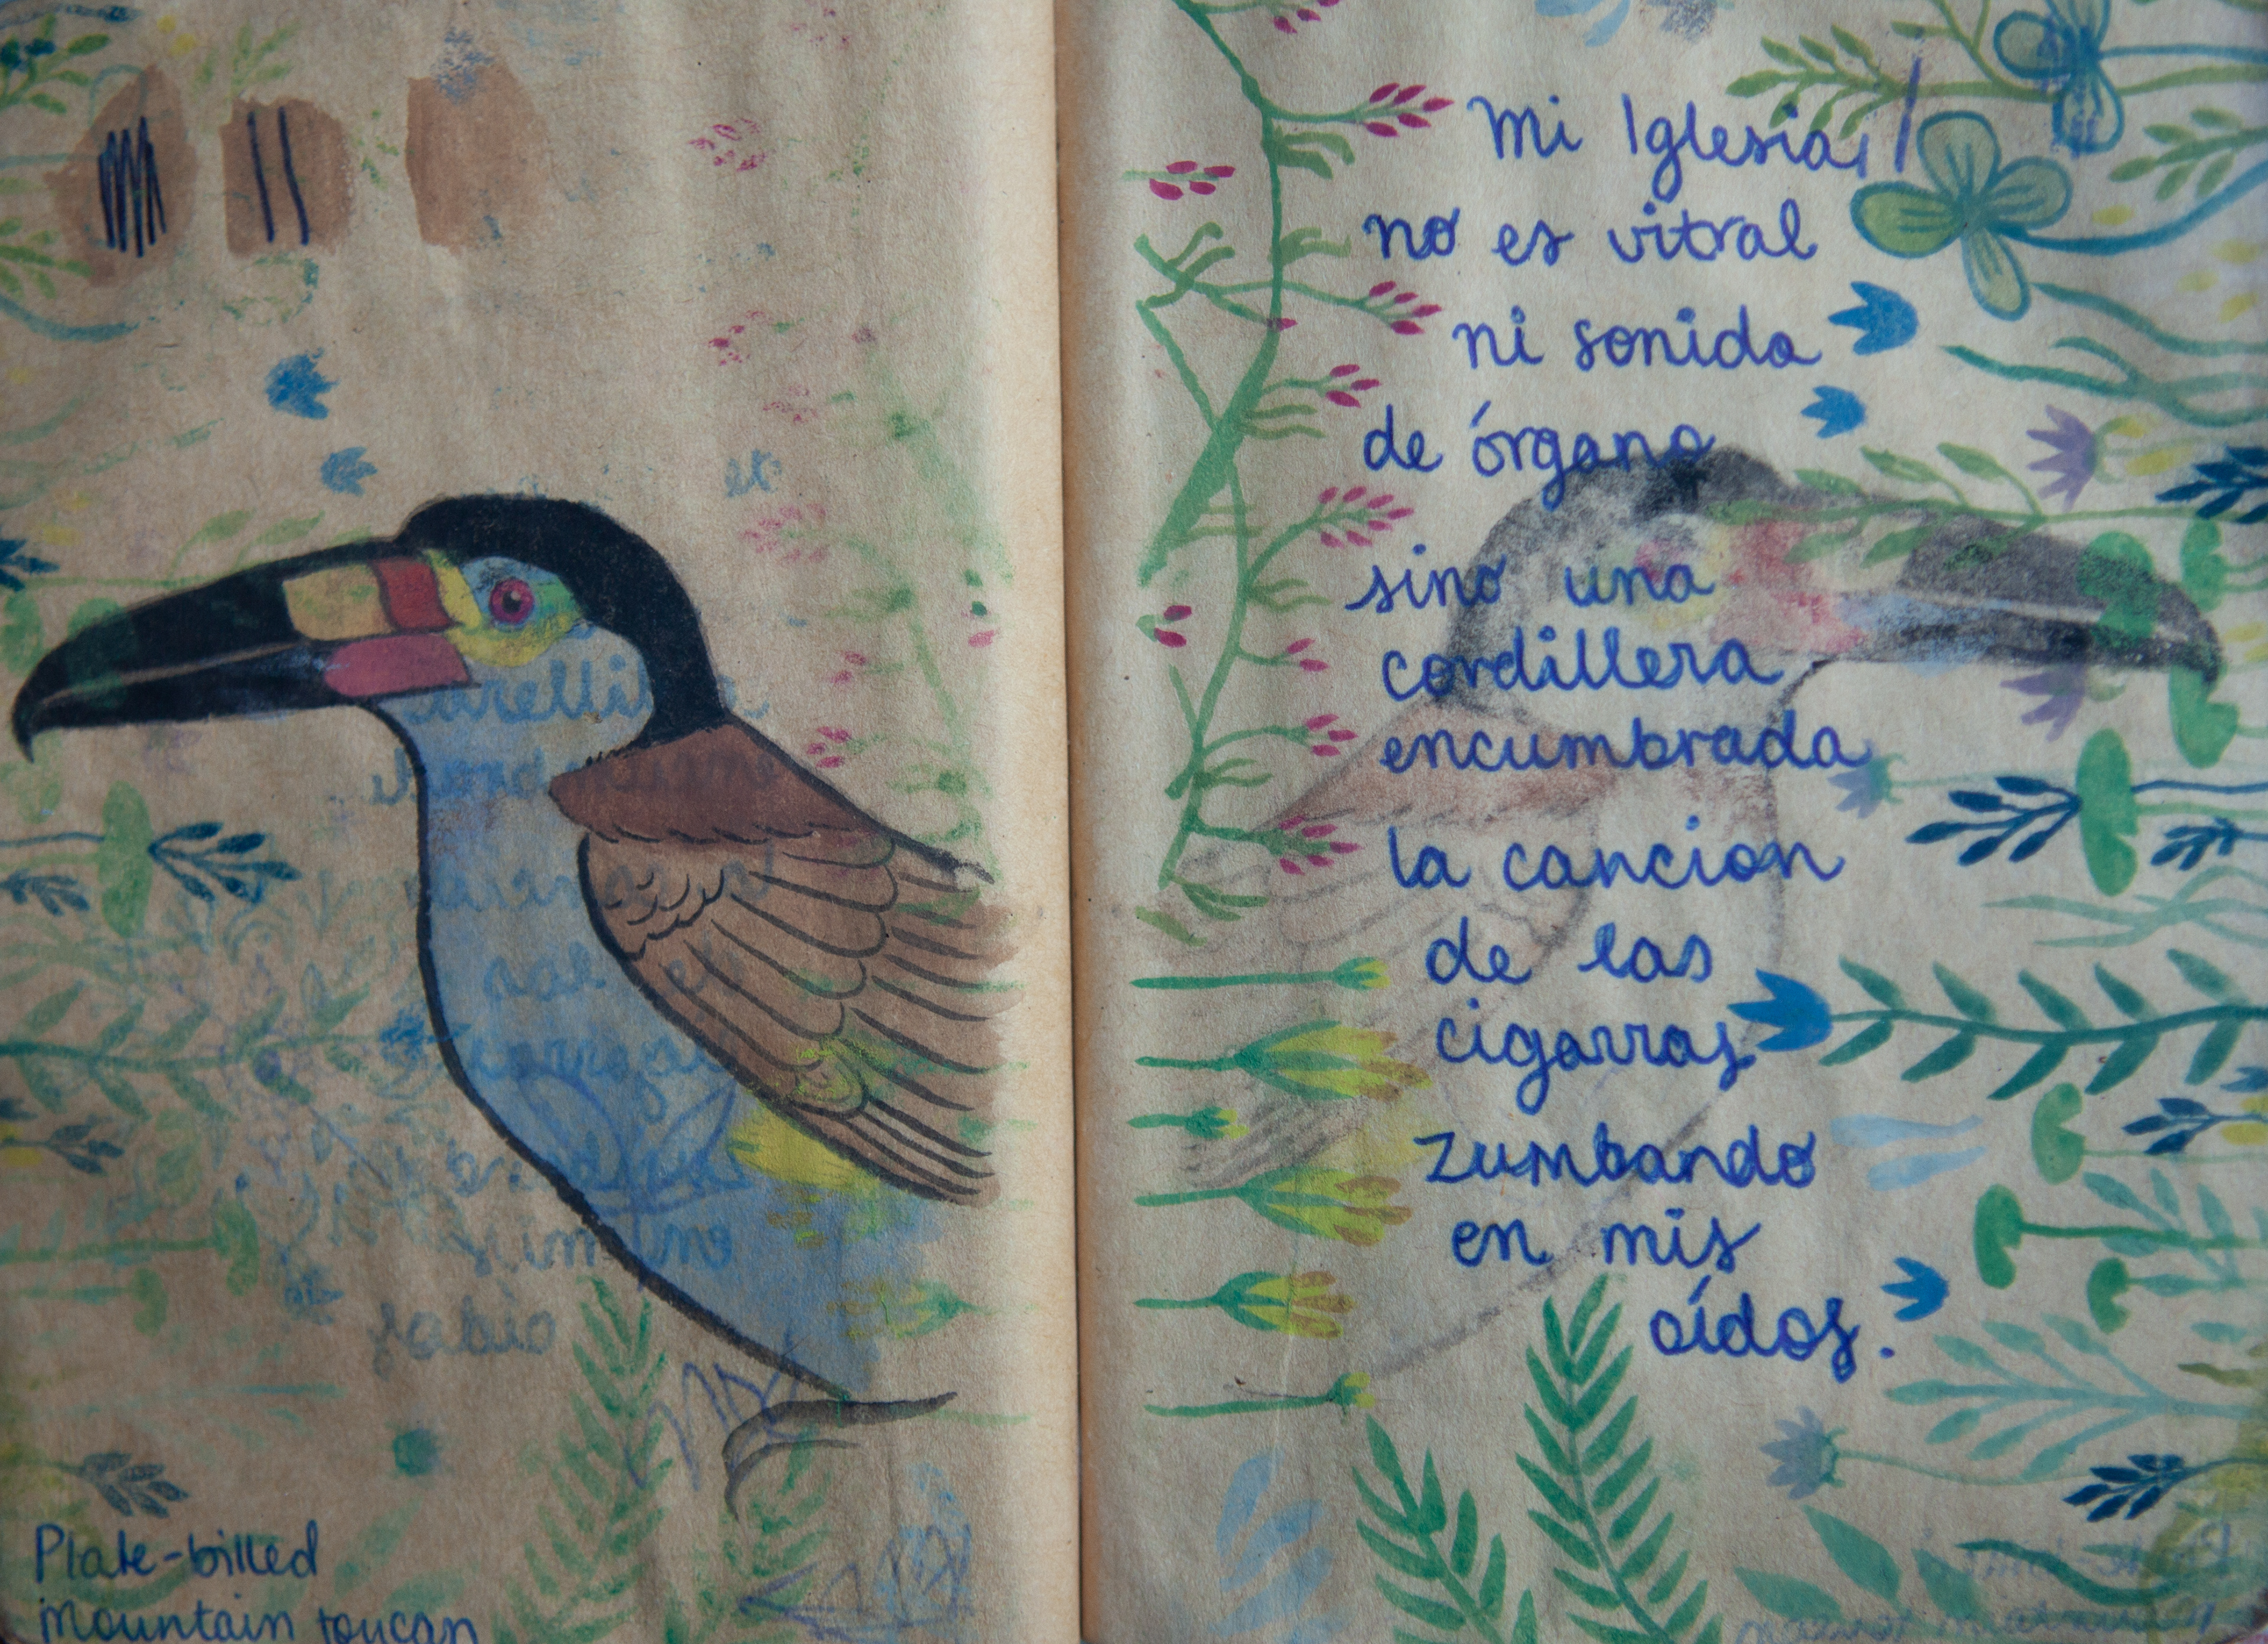 Plate-billed
mountain toucan
Mi Iglesia,
no es vitral
ni sonido
de órgano
sino una
cordillera
encumbrada
la cancion
de las
cigarras
zumbando
en mis
oídos.